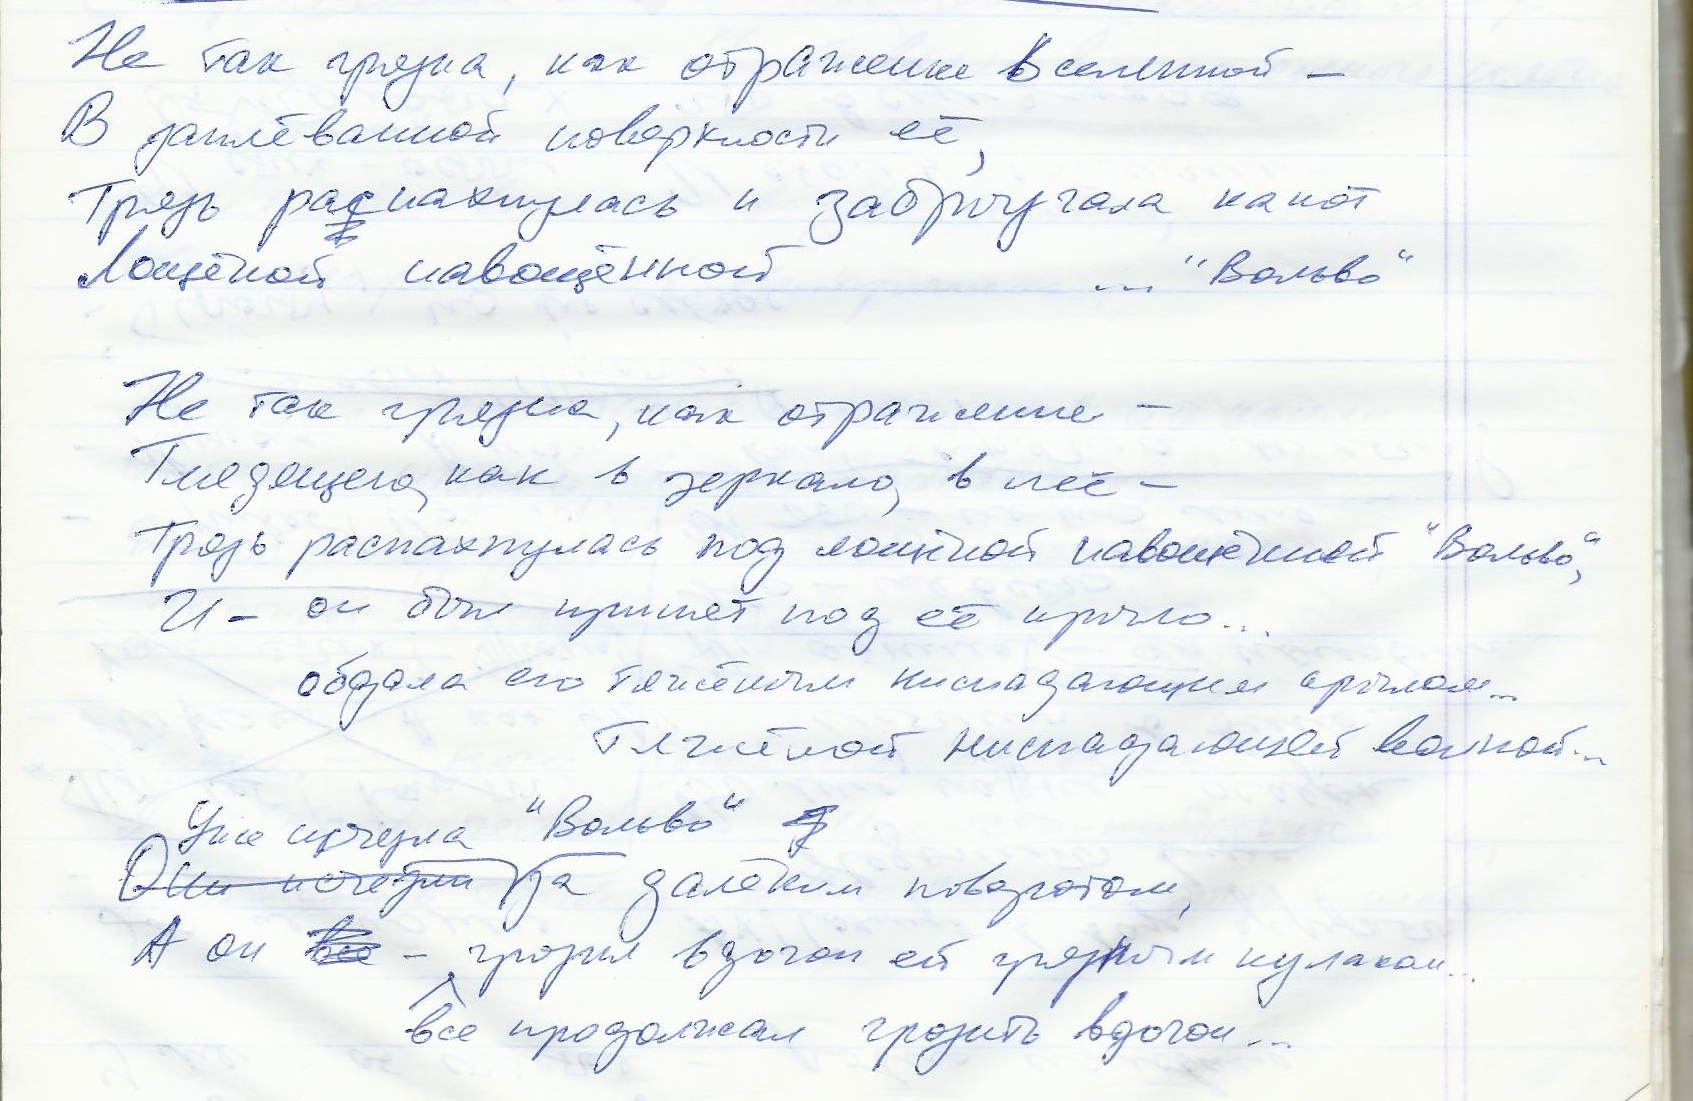 Не так грязна, как отражение Вселенной –
В заплёванной поверхности её,
Грязь распахнулась и забрюзгала капот
Лощёной навощённой ... "Вольво"
Не так грязна, как отражение –
Глядящего, как в зеркало, в неё –
Грязь распахнулась под лощёной навощённой "Вольво",
И – он был принят под её крыло...
обдала его тяжёлым ниспадающим крылом...
Тяжёлой ниспадающей волной...
Уже исчезла "Вольво"
Они исчезли за далёким поворотом,
А он все – грозил вдогон ей грязным кулаком...
все продолжал грозить вдогон...